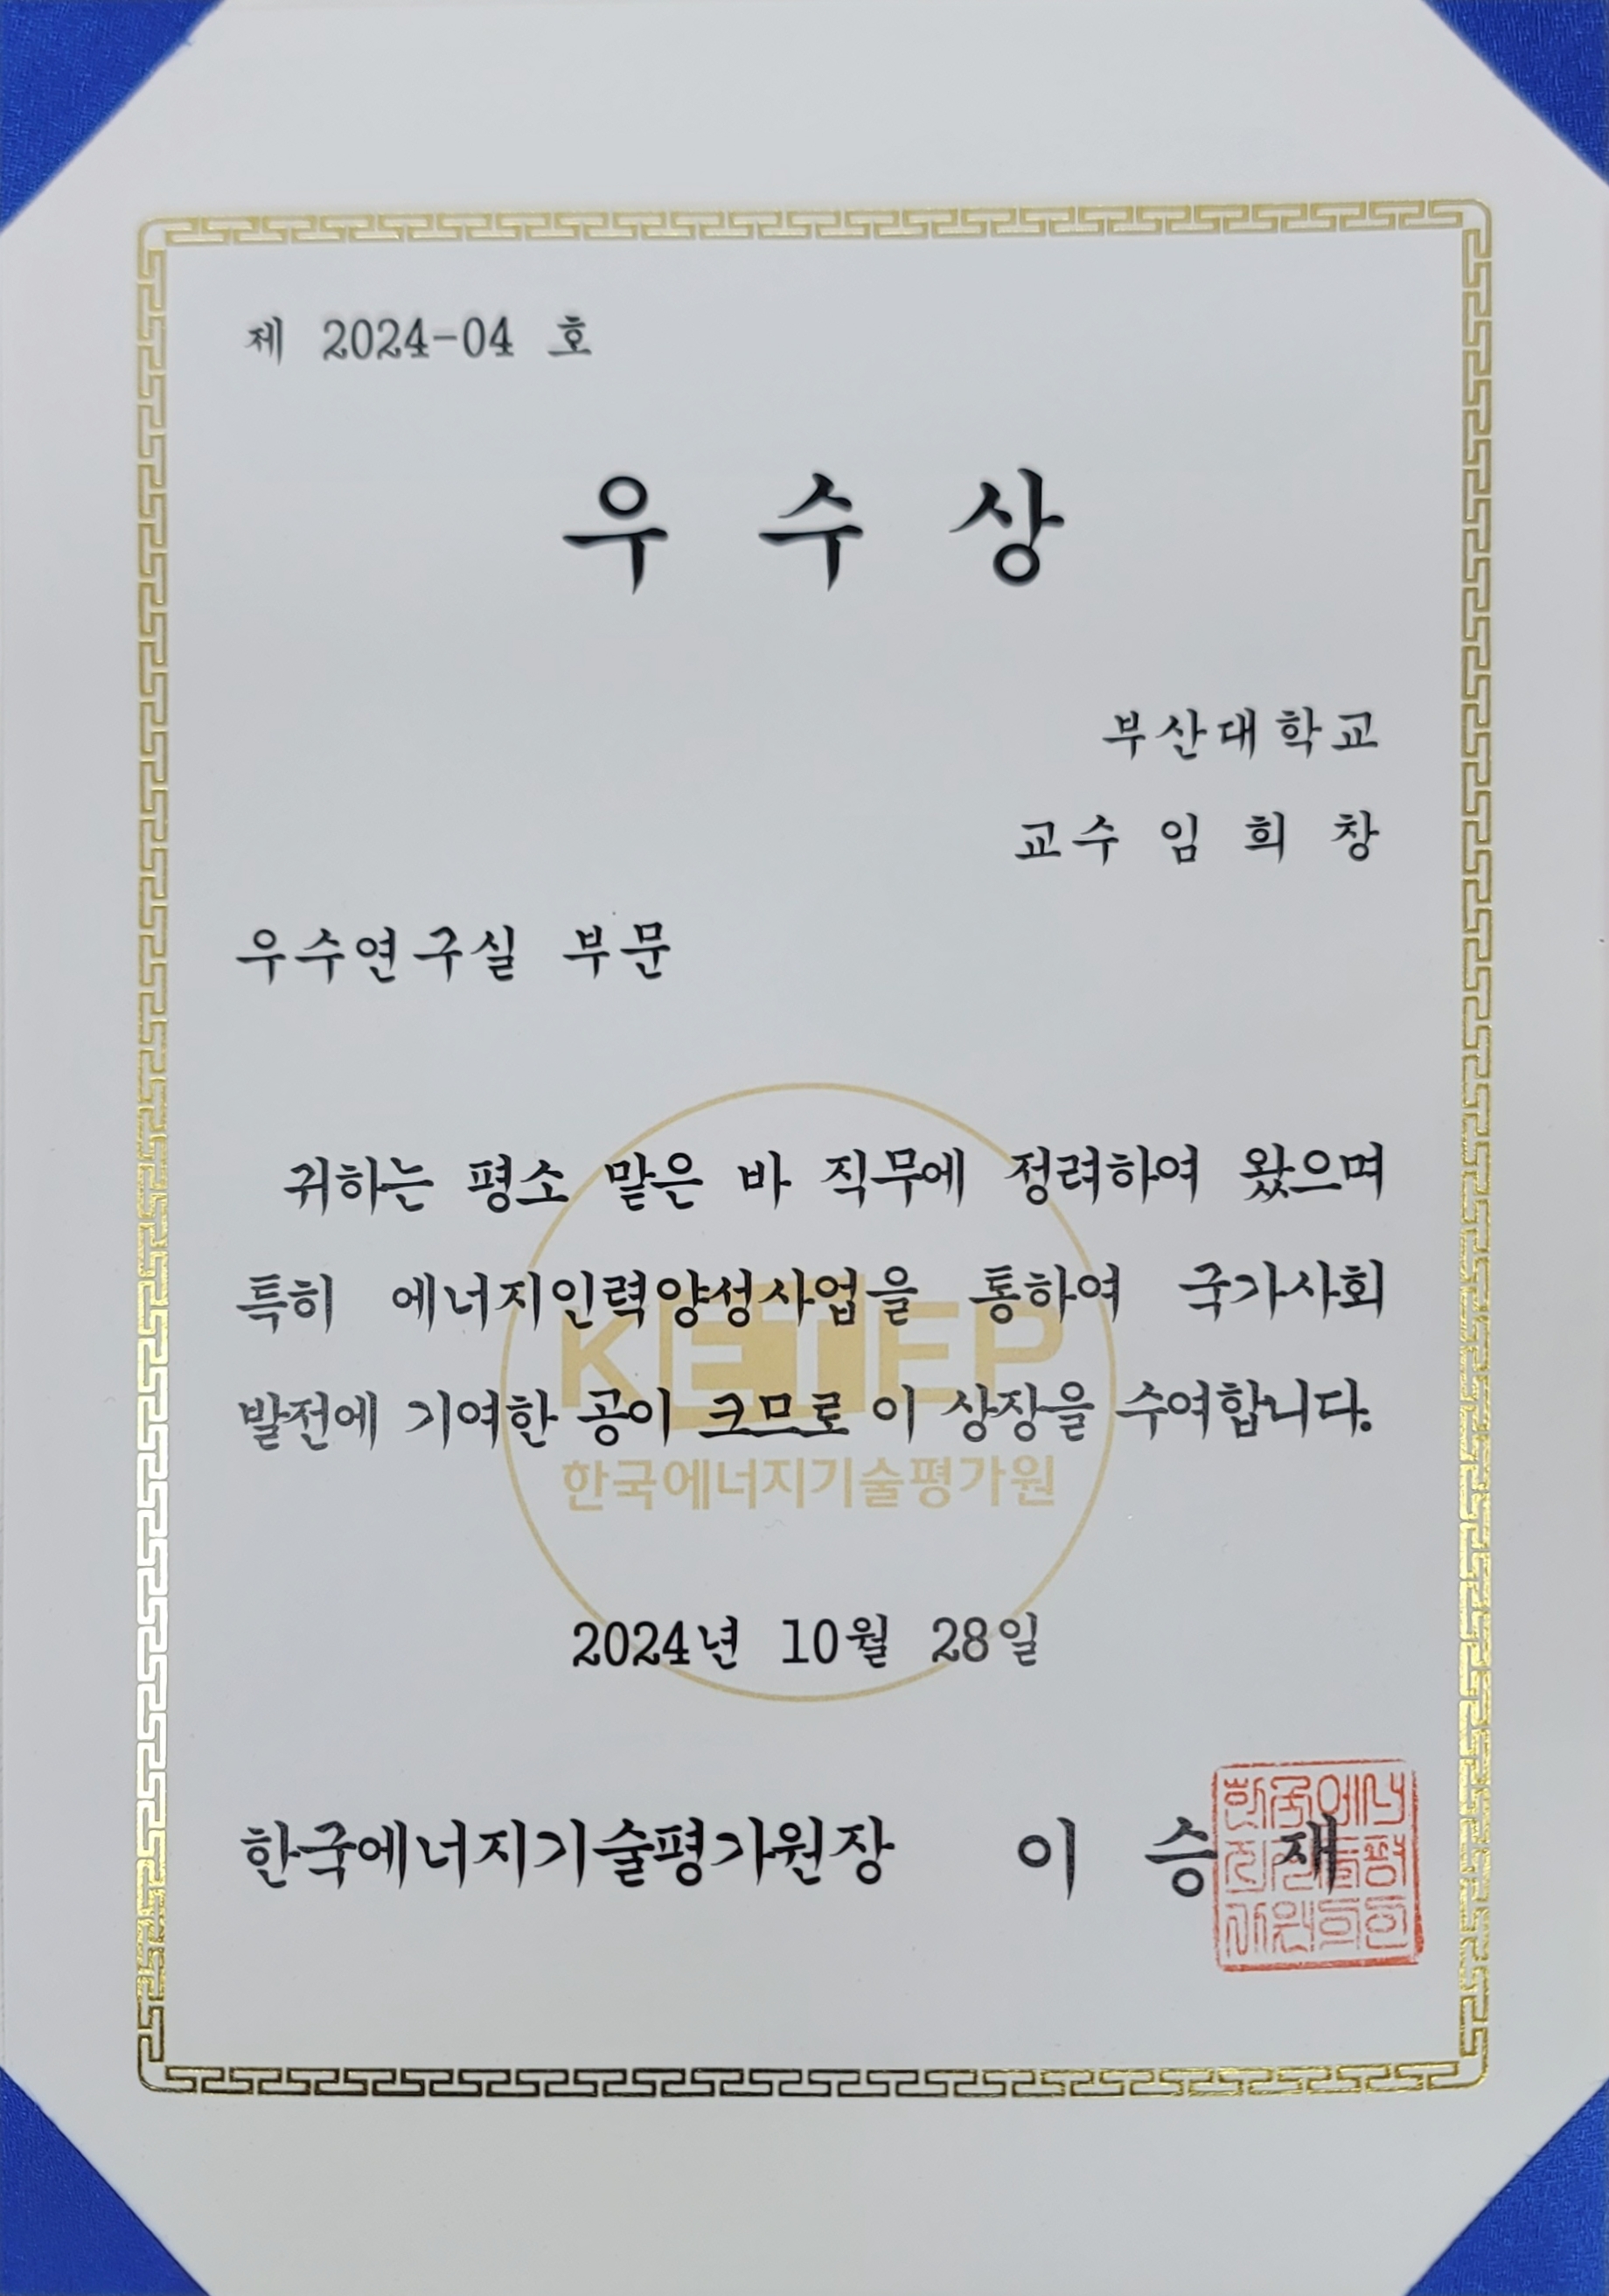 제 2024-04 호
우 수 상
부산대학교
교수 임 희 창
우수연구실 부문
귀하는 평소 맡은 바 직무에 정려하여 왔으며
특히 에너지인력양성사업을 통하여 국가사회
발전에 기여한 공이 크므로 이 상장을 수여합니다.
KETEP
한국에너지기술평가원
2024년 10월 28일
한국에너지기술평가원장 이 승 재